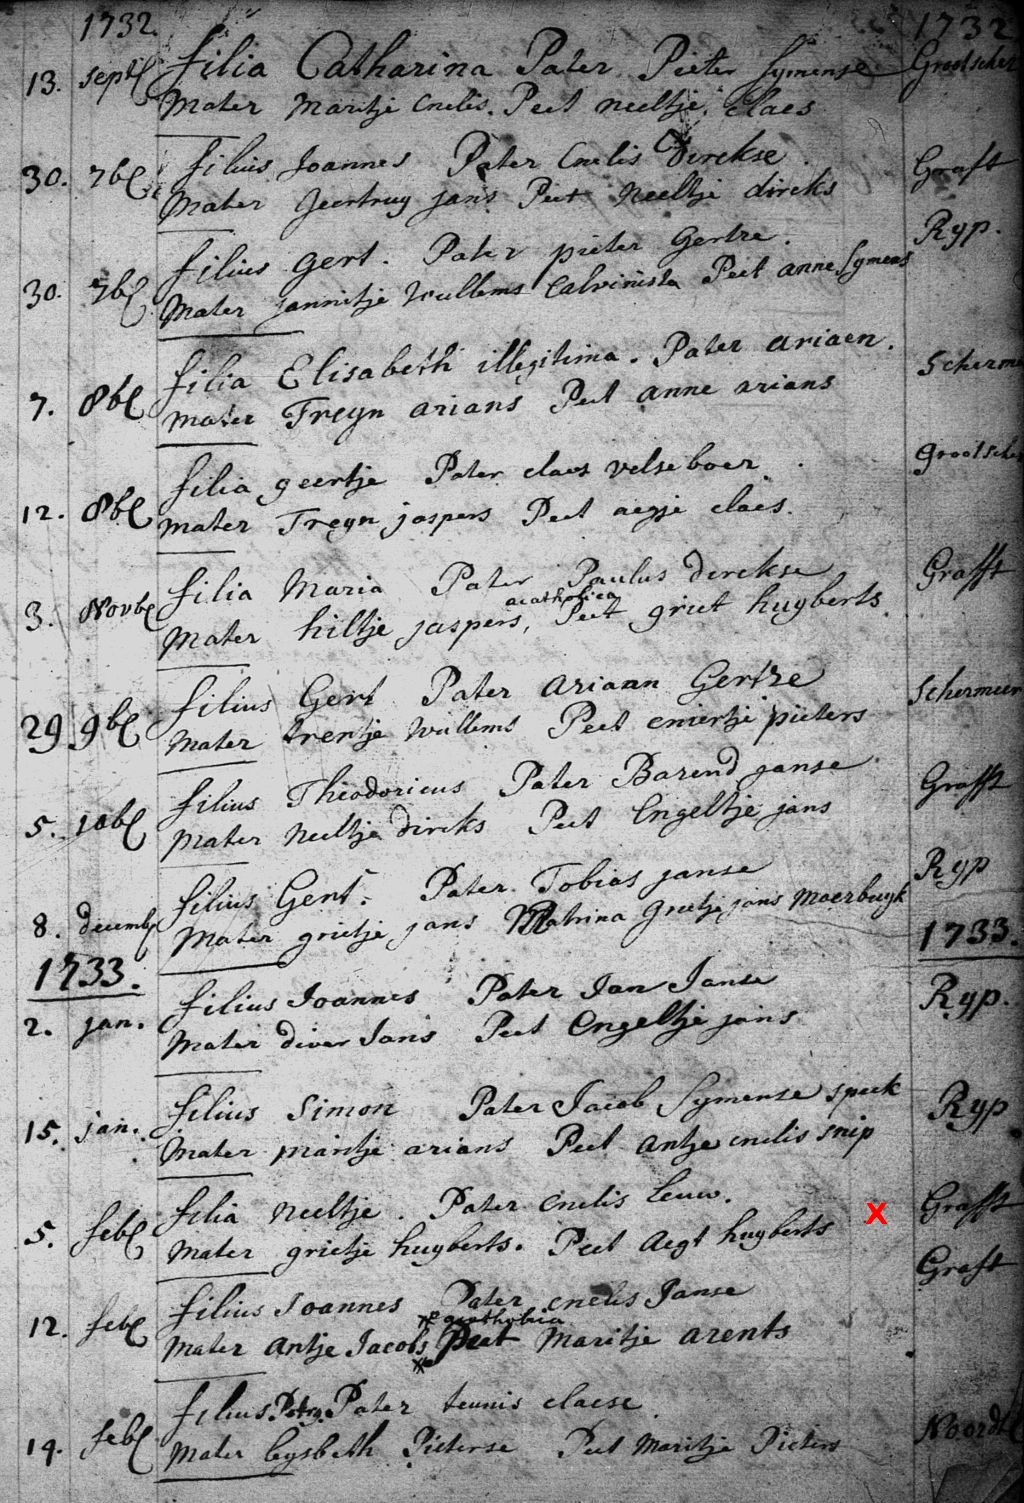 1732. 1732
13. Septb filia Catharina Pater Pieter Symense Grootscher
Mater Maritje Cnelis. Peet neeltje Claes
30. 7b filius Joannes Pater Cnelis Dirckse. Graft
Mater Geertruy jans Peet Neeltje dircks
Ryp.
30. 7b filius gert. Pater pieter Gertze.
Mater jannitje Wullems Calvinista Peet anne Symens
7. 8b filia Elisabeth illegitima. Pater ariaen. Scherme
Mater Treyn arians Peet anne arians
12. 8b filia geertje Pater claes velseboer. grootsche
Mater Treyn jaspers Peet aegje claes.
3. Novb filia Maria Pater Paulus dirckse Grafft
acatholica
Mater hiltje jaspers, Peet griet huyberts.
29 9b filius Gert Pater Ariaan Gertze Schermeer
Mater trentje Wullems Peet emertje pieters
5. 10b filius Theodoricus Pater Barend janse. Grafft
Mater Neeltje dircks Peet Engeltje jans
8. decemb filius Gert. Pater Tobias janse Ryp
Mater grietje jans Matrina Grietje jans Moerbuyk
1733. 1733.
2. jan. filius Joannes Pater Jan Janse Ryp.
Mater diver Jans Peet Engeltje jans
15. jan. filius Simon Pater Jacob Symense speck Ryp
Mater maritje arians Peet Antje cnelis snip
5. feb filia Neeltje. Pater Cnelis Leuw. X Grafft
Mater grietje huyberts. Peet Aegt huyberts
12. feb filius Joannes Pater cnelis Janse Graft
* acatholica
Mater Antje Jacobs * Peet Maritje arents
14. feb filius Petrus Pater teunis claese Noordt
Mater lysbeth Pieterse Peet Maritje Pieters